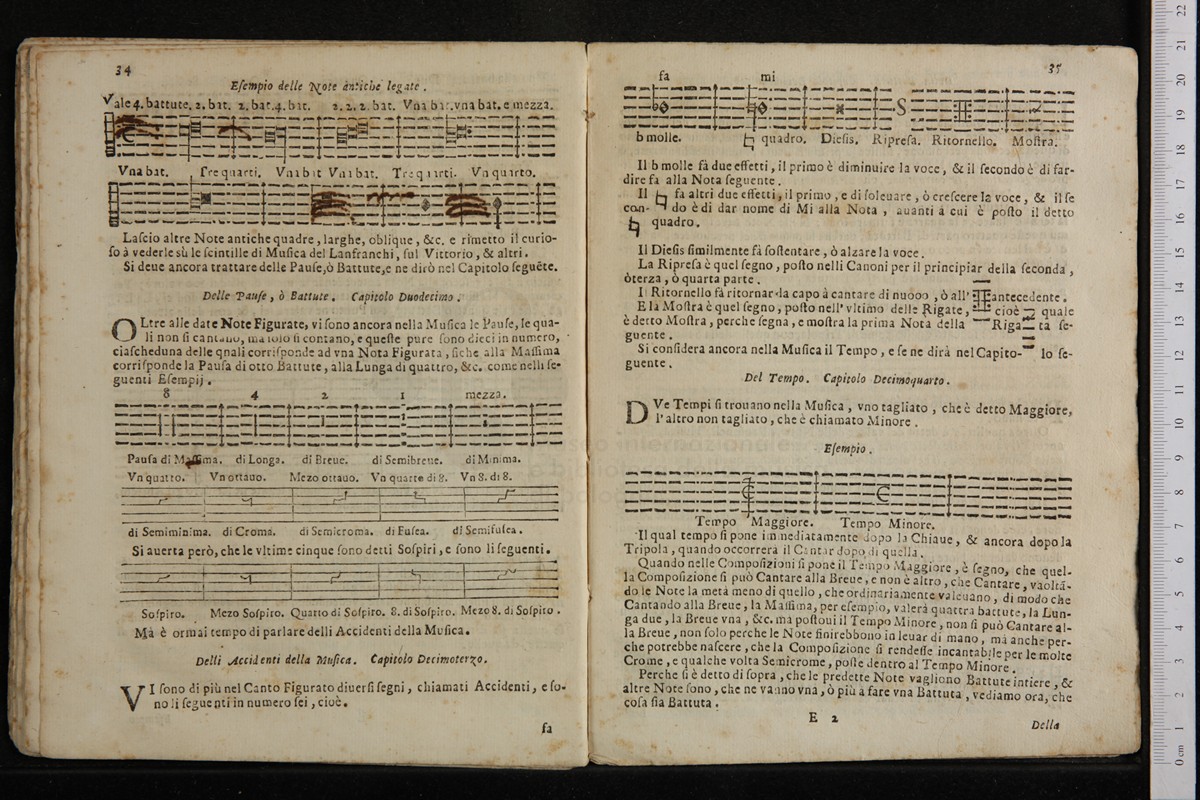 34
Esempio delle Note antiche legate.
Vale 4. battute. 2. bat. 2. bat. 4. bat. 2. 2. 2. bat. Vna bat. vna bat. e mezza.
Vna bat. Tre quarti. Vna bat Vna bat. Tre quarti. Vn quarto.
Lascio altre Note antiche quadre, larghe, oblique, &c. e rimetto il curio-
so à vederle sù le scintille di Musica del Lanfranchi, sul Vittorio, & altri.
Si deue ancora trattare delle Pause, ò Battute, e ne dirò nel Capitolo seguẽte.
Delle Pause, ò Battute. Capitolo Duodecimo.
OLtre alle date Note Figurate, vi sono ancora nella Musica le Pause, le qua-
li non si cantano, ma solo si contano, e queste pure sono dieci in numero,
ciascheduna delle qnali corrisponde ad vna Nota Figurata, siche alla Massima
corrisponde la Pausa di otto Battute, alla Lunga di quattro, &c. come nelli se-
guenti Esempij.
8 4 2 1 mezza.
Pausa di Massima. di Longa. di Breue. di Semibreue. di Minima.
Vn quatto. Vn ottauo. Mezo ottauo. Vn quarto di 8. Vn 8. di 8.
di Semiminima. di Croma. di Semicroma. di Fusea. di Semifusea.
Si auerta però, che le vltime cinque sono detti Sospiri, e sono li seguenti.
Sospiro. Mezo Sospiro. Quatto di Sospiro. 8. di Sospiro. Mezo 8. di Sospiro.
Mà è ormai tempo di parlare delli Accidenti della Musica.
Delli Accidenti della Musica. Capitolo Decimoterzo.
VI sono di più nel Canto Figurato diuersi segni, chiamati Accidenti, e so-
no li seguenti in numero sei, cioè.
fa
35
fa mi
b molle. ♮ quadro. Diesis. Ripresa. Ritornello. Mostra.
Il b molle fà due effetti, il primo è diminuire la voce, & il secondo è di far-
dire fa alla Nota seguente.
Il ♮ fa altri due effetti, il primo, e di soleuare, ò crescere la voce, & il se
con- do è di dar nome di Mi alla Nota, auanti à cui è posto il detto
♮ quadro.
Il Diesis similmente fà sostentare, ò alzare la voce.
La Ripresa è quel segno, posto nelli Canoni per il principiar della seconda,
ò terza, ò quarta parte.
Il Ritornello fà ritornar da capo à cantare di nuouo, ò all' antecedente.
E la Mostra è quel segno, posto nell' vltimo delle Rigate, cioè quale
è detto Mostra, perche segna, e mostra la prima Nota della Riga- ta se-
guente.
Si considera ancora nella Musica il Tempo, e se ne dirà nel Capito- lo se-
guente.
Del Tempo. Capitolo Decimoquarto.
DVe Tempi si trouano nella Musica, vno tagliato, che è detto Maggiore,
l'altro non tagliato, che è chiamato Minore.
Esempio.
Tempo Maggiore. Tempo Minore.
Il qual tempo si pone immediatamente dopo la Chiaue, & ancora dopo la
Tripola, quando occorrerà il Cantar dopo di quella.
Quando nelle Composizioni si pone il Tempo Maggiore, è segno, che quel-
la Composizione si può Cantare alla Breue, e non è altro, che Cantare, vàoltã-
do le Note la metà meno di quello, che ordinariamente valeuano, di modo che
Cantando alla Breue, la Massima, per esempio, valerà quattra battute, la Lun-
ga due, la Breue vna, &c. mà postoui il Tempo Minore, non si può Cantare al-
la Breue, non solo perche le Note finirebbono in leuar di mano, mà anche per-
che potrebbe nascere, che la Composizione si rendesse incantabile per le molte
Crome, e qualche volta Semicrome, poste dentro al Tempo Minore.
Perche si è detto di sopra, che le predette Note vagliono Battute intiere, &
altre Note sono, che ne vanno vna, ò più a fare vna Battuta, vediamo ora, che
cosa sia Battuta.
E 2
Della